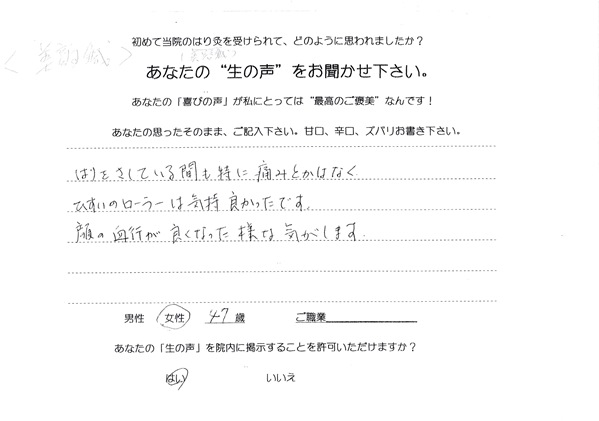 初めて当院のはり灸を受けられて、どのように思われましたか？
あなたの“生の声”をお聞かせ下さい。
あなたの「喜びの声」が私にとっては“最高のご褒美”なんです！
あなたの思ったそのまま、ご記入下さい。甘口、辛口、ズバリお書き下さい。
はりをさしている間も特に痛みとかはなく
ひすいのローラーは気持良かったです。
顔の血行が良くなった様な気がします。
男性 女性 47歳 ご職業
あなたの「生の声」を院内に掲示することを許可いただけますか？
はい いいえ